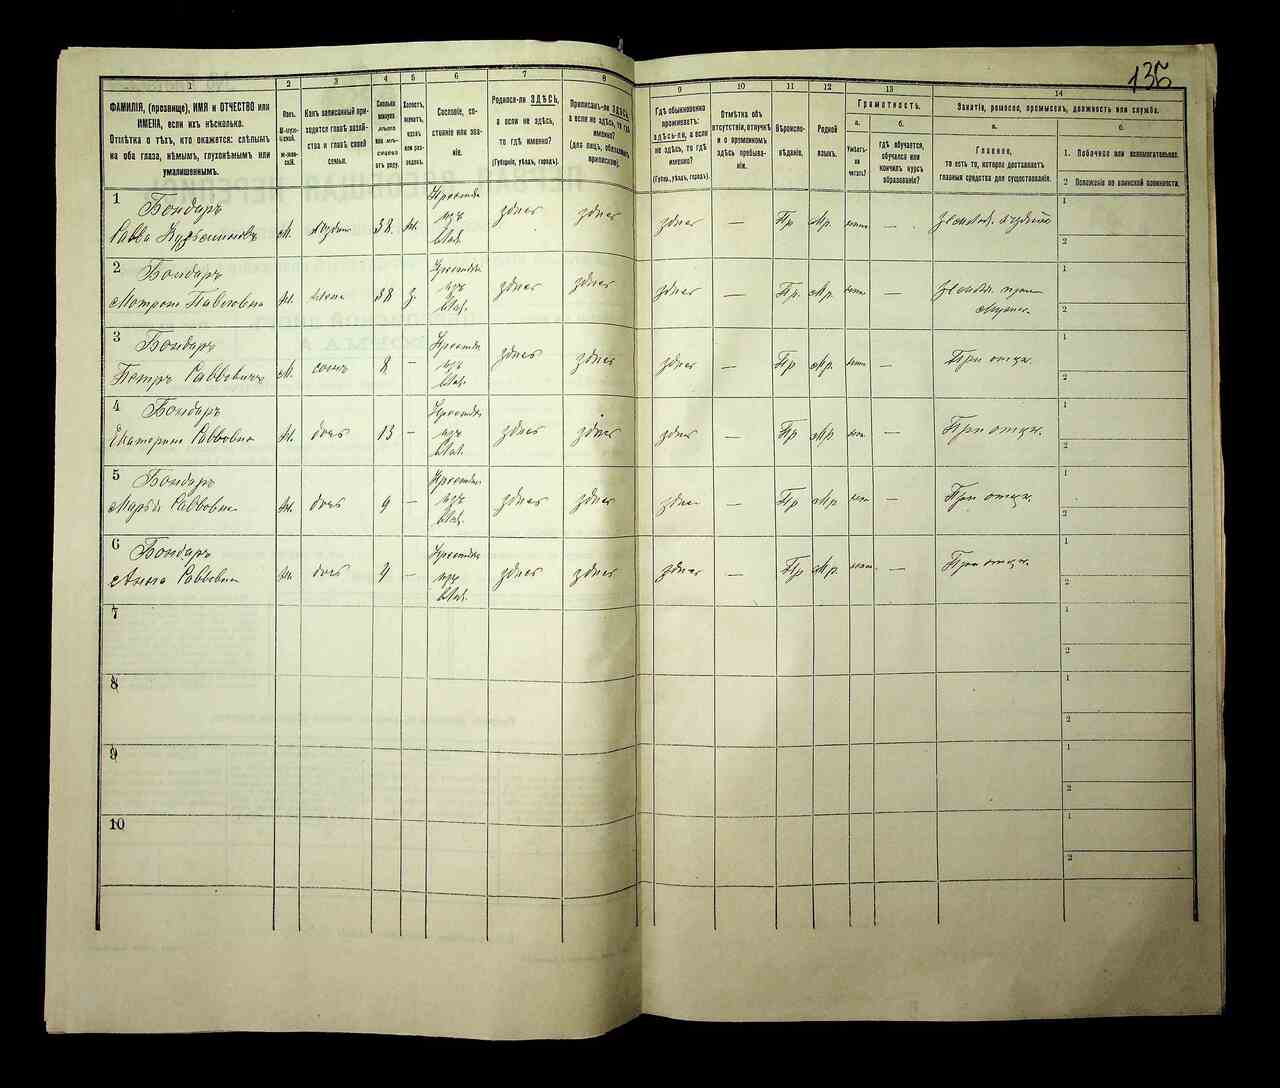 135
1
2
3
4
5
6
7
8
9
10
11
12
13
14
ФАМИЛІЯ, (прозвище), ИМЯ и ОТЧЕСТВО или
ИМЕНА, если ихъ нѣсколько.
Отмѣтка о тѣхъ, кто окажется: слѣпымъ
на оба глаза, нѣмымъ, глухонѣмымъ или
умалишеннымъ.
Полъ.
М-мужской.
Ж-женскій.
Какъ записанный приходится главѣ хозяйства и главѣ своей
семьи.
Сколько
минуло
лѣтъ
или мѣсяцевъ
отъ роду.
Холостъ,
женатъ,
вдовъ
или разведенъ.
Сословіе, состояніе или званіе.
Родился-ли ЗДѢСЬ,
а если не здѣсь,
то гдѣ именно?
(Губернія, уѣздъ, городъ).
Приписанъ-ли ЗДѢСЬ
а если не здѣсь, то гдѣ
именно?
(для лицъ, обязанныхъ
припиской).
Гдѣ обыкновенно
проживаетъ:
здѣсь-ли, а если
не здѣсь, то гдѣ
именно?
(Губер., уѣздъ, городъ).
Отмѣтка объ
отсутствіи, отлучкѣ
и о временномъ
здѣсь пребываніи.
Вѣроисповѣданіе.
Родной
языкъ.
Грамотность.
а.
Умѣетъ-ли
читать?
б.
гдѣ обучается,
обучался или
кончилъ курсъ
образованія?
Занятіе, ремесло, промыселъ, должность или служба.
а.
Главное,
то есть то, которое доставляетъ
главныя средства для существованія.
б.
1. Побочное или вспомогательное.
2 Положеніе по воинской повинности.
1
Бондарь
Савва
М.
38
Ж.
здѣсь
здѣсь
здѣсь
—
Пр
Мр.
—
1
2
2
Бондарь
Мотрона Павловна
Ж.
жена
38
З.
здѣсь
здѣсь
здѣсь
—
Пр.
Мр.
—
1
2
3
Бондарь
Петръ Саввовичъ
М.
сынъ
8
—
здѣсь
здѣсь
здѣсь
—
Пр
Мр.
—
При отцѣ.
1
2
4
Бондарь
Екатерина Саввовна
Ж.
дочь
13
—
здѣсь
здѣсь
здѣсь
—
Пр
Мр
—
При отцѣ.
1
2
5
Бондарь
Марья Саввовна
Ж.
дочь
9
—
здѣсь
здѣсь
здѣсь
—
Пр
Мр
—
При отцѣ.
1
2
6
Бондарь
Анна Саввовна
Ж.
дочь
4
—
здѣсь
здѣсь
здѣсь
—
Пр
Мр.
—
При отцѣ.
1
2
7
1
2
8
1
2
9
1
2
10
1
2